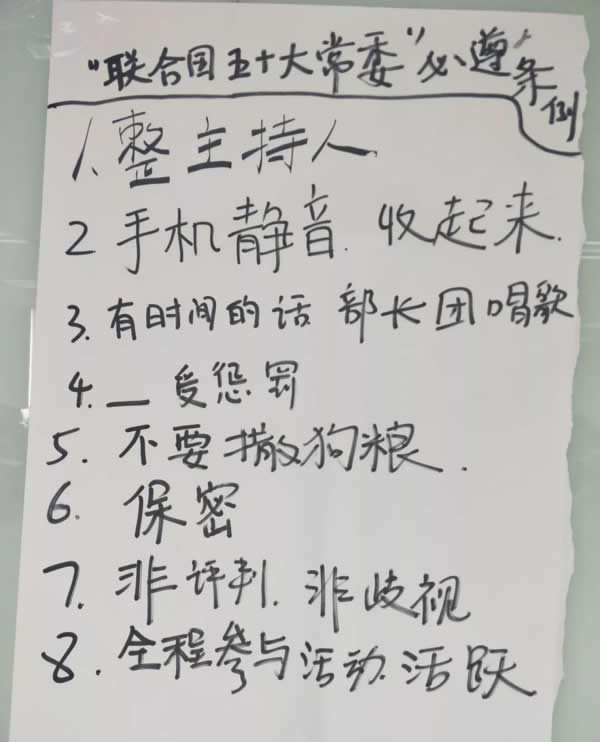 “联合国五十大常委”必遵条例
1、整主持人
2 手机静音. 收起来.
3. 有时间的话 部长团唱歌
4. __ 受惩罚
5. 不要撒狗粮.
6. 保密
7. 非评判. 非歧视
8. 全程参与活动. 活跃